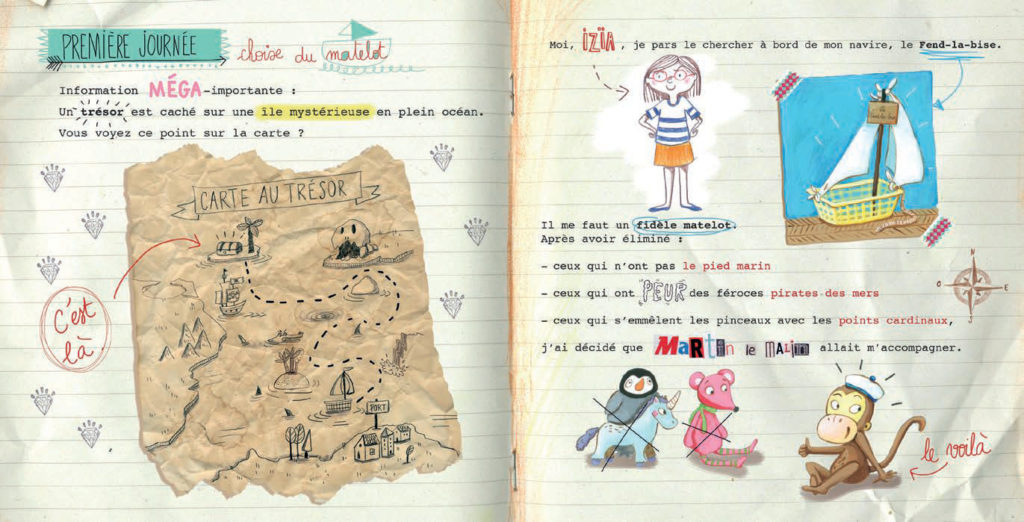 PREMIÈRE JOURNÉE
choix du matelot
Information MÉGA-importante :
Un trésor est caché sur une île mystérieuse en plein océan.
Vous voyez ce point sur la carte ?
CARTE AU TRÉSOR
C'est là
PORT
Moi, IZÏA, je pars le chercher à bord de mon navire, le Fend-la-bise.
Il me faut un fidèle matelot.
Après avoir éliminé :
- ceux qui n'ont pas le pied marin
- ceux qui ont PEUR des féroces pirates des mers
- ceux qui s'emmêlent les pinceaux avec les points cardinaux,
j'ai décidé que MARTIN le MALIN allait m'accompagner.
N
O E
S
le voilà